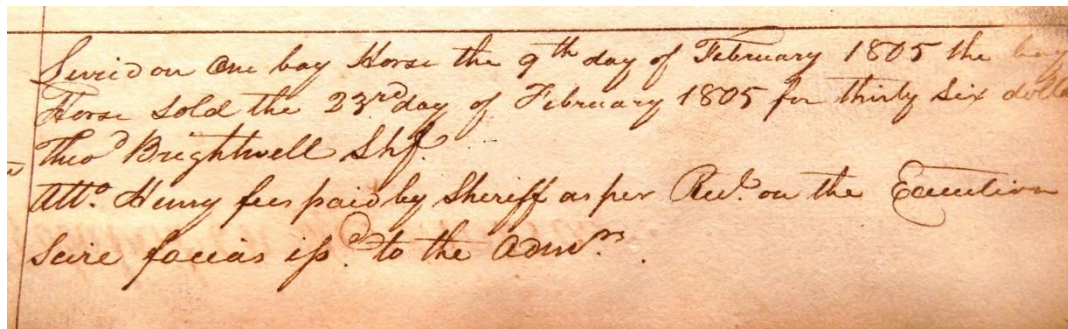 Levied on one bay Horse the 9th day of February 1805 the bay
Horse sold the 23rd day of February 1805 for thirty six dolla
Theo.d Brightwell Shf.
Atto. Henry fees paid by Sheriff as per Rec.t on the Execution
Scire facias iss.d to the Adm.rs.